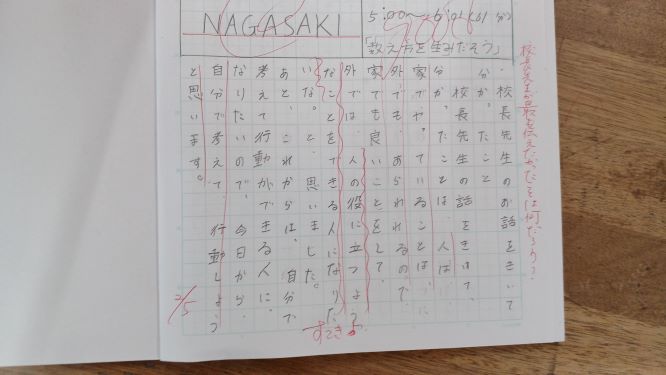 NAGASAKI
「数え方を生みだそう」
校長先生が最も伝えたかったことは何だろう?
校長先生のお話をきいて
分かったこと
校長先生の話をきいて、
分かったことは、人は
家でやっていることは、
外でもあらわれるので、
家でも良いことをして
外では人の役に立つよう
なことをできる人になりた
いなと思いました。
あと、これからは、自分で
考えて行動ができる人に
なりたいので、今日から
自分で考えて行動しよう
と思います。
すてき
2/5